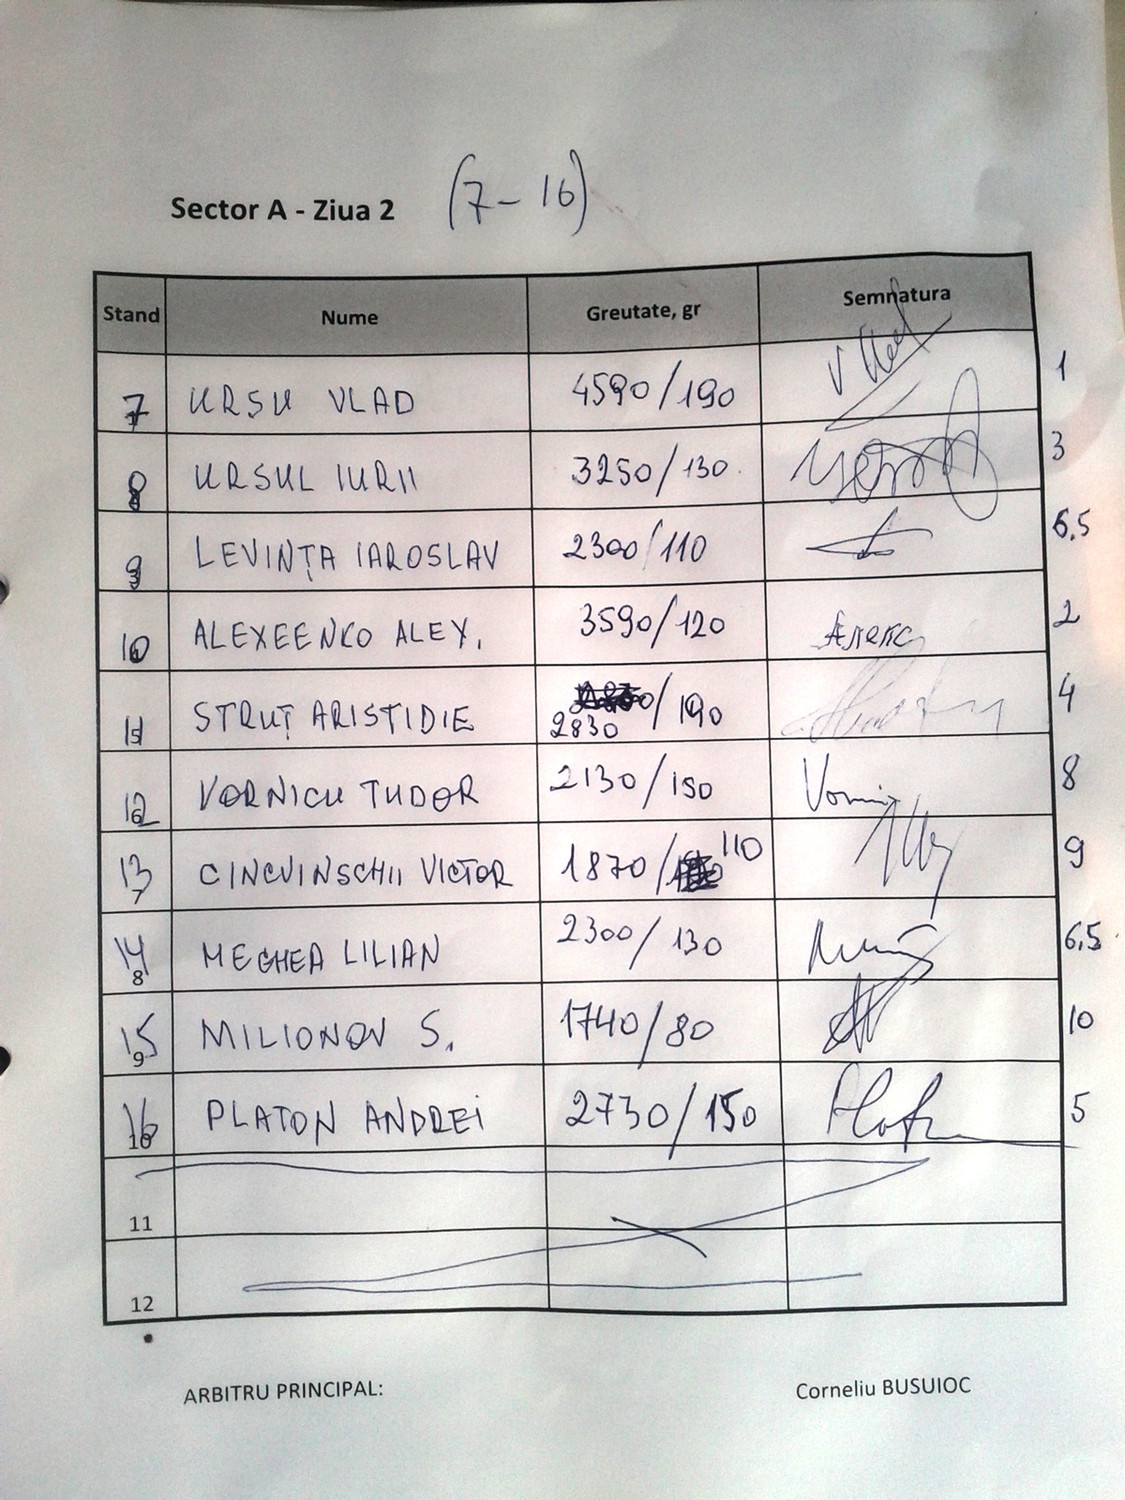 Sector A - Ziua 2 (7-16)
Stand Nume Greutate, gr Semnatura
7 URSU VLAD 4590/190 V Vlad 1
8 URSUL IURII 3250/130 3
9 LEVINȚA IAROSLAV 2300/110 6,5
10 ALEXEENCO ALEX. 3590/120 Алекс 2
11 STRUȚ ARISTIDIE 2830/190 4
12 VORNICU TUDOR 2130/150 8
13 7 CINCVINSCHII VICTOR 1870/110 9
14 8 MEGHEA LILIAN 2300/130 6,5
15 9 MILIONOV S. 1740/80 10
16 10 PLATON ANDREI 2730/150 5
11
12
ARBITRU PRINCIPAL: Corneliu BUSUIOC